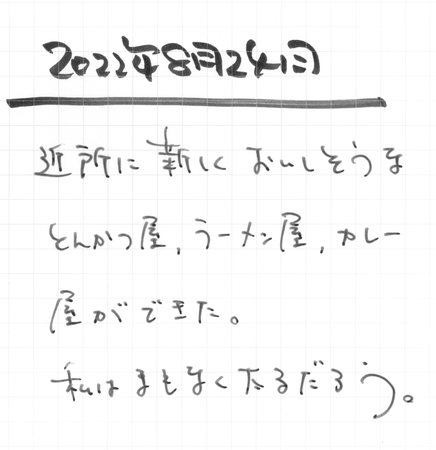 2022年8月24日
近所に新しくおいしそうな
とんかつ屋,ラーメン屋,カレー
屋ができた。
私はまもなく太るだろう。